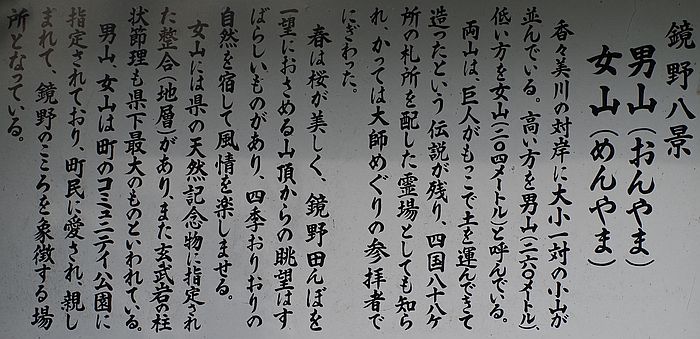 鏡野八景
男山（おんやま）
女山（めんやま）
香々美川の対岸に大小一対の小山が
並んでいる。高い方を男山（二六〇メートル）、
低い方を女山（二〇四メートル）と呼んでいる。
両山は、巨人がもっこで土を運んできて
造ったという伝説が残り、四国八十八ケ
所の札所を配した霊場としても知ら
れ、かっては大師めぐりの参拝者で
にぎわった。
春は桜が美しく、鏡野田んぼを
一望におさめる山頂からの眺望はす
ばらしいものがあり、四季おりおりの
自然を宿して風情を楽しませる。
女山には県の天然記念物に指定され
た整合（地層）があり、また玄武岩の柱
状節理も県下最大のものといわれている。
男山、女山は町のコミュニティ公園に
指定されており、町民に愛され、親し
まれて、鏡野のこころを象徴する場
所となっている。